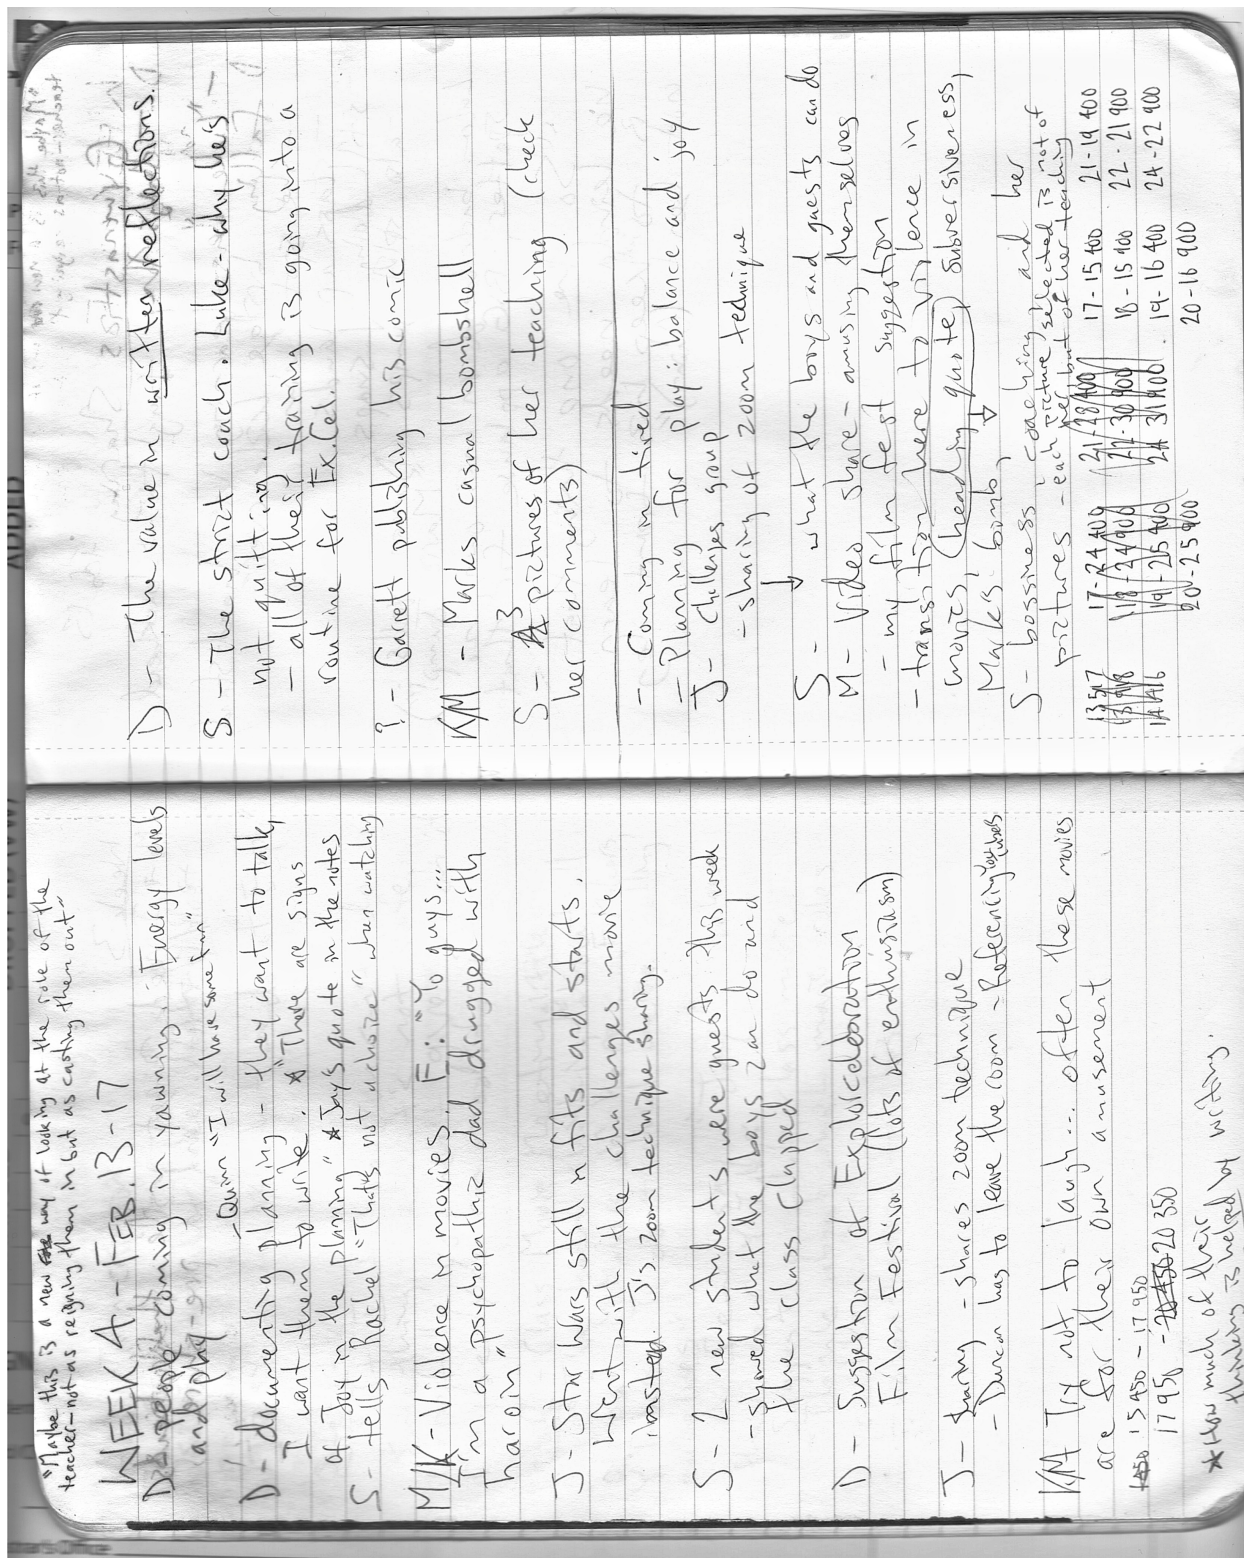 "Maybe this is a new way of looking at the role of the
teacher-not as reigning them in but as casting them out"
WEEK 4 - FEB. 13 - 17
D - people coming in yawning. Energy levels
and play - Quinn "I will have some fun"
D - documenting planning - they want to talk,
I want them to write. * "There are signs
of Joy in the planning" * Jay's quote in the notes
S - tells Rachel "That's not a choice" when watching
M/K - Violence in movies. E: "Yo guys...
I'm a psychopathic dad drugged with
haroin"
J - Star Wars still in fits and starts.
Went with the challenges movie
instead. J's zoom technique sharing.
S - 2 new students were guests this week
- showed what the boys can do and
the class clapped
D - Suggestion of Explorcelebration
Film Festival (lots of enthusiasm)
J - Sharing - shares zoom technique
- Duncan has to leave the room - Referencing
KM Try not to laugh... often these movies
are for their own amusement
1450 15450 - 17950
17950 - 20450 20350
* How much of their
thinking is helped by writing.
D - The value in written reflections.
S - The strict coach. Luke - why he's -
not quitting.
- all of their training is going into a
routine for ExCel.
? - Garrett publishing his comic
K/M - Marks casual bombshell
S - 3 pictures of her teaching (check
her comments)
- Coming in tired
- Planning for play: balance and joy
J - Challenges group
- sharing of zoom technique
S - what the boys and guests can do
M - Video share - amusing themselves
- my film fest suggestion
- transition here to violence in
movies, (heading quote) subversiveness,
Marks' bomb,
S - bossiness, coaching, and her
pictures - each picture selected is not of
her but of her teaching
13 517 17-24 400 21/28 400 17-15 400 21-19 400
13 918 18-24 900 22-30 900 18-15 900 22-21 900
14 416 19-25 400 24 31 400 19-16 400 24-22 900
20-25 900 20-16 900